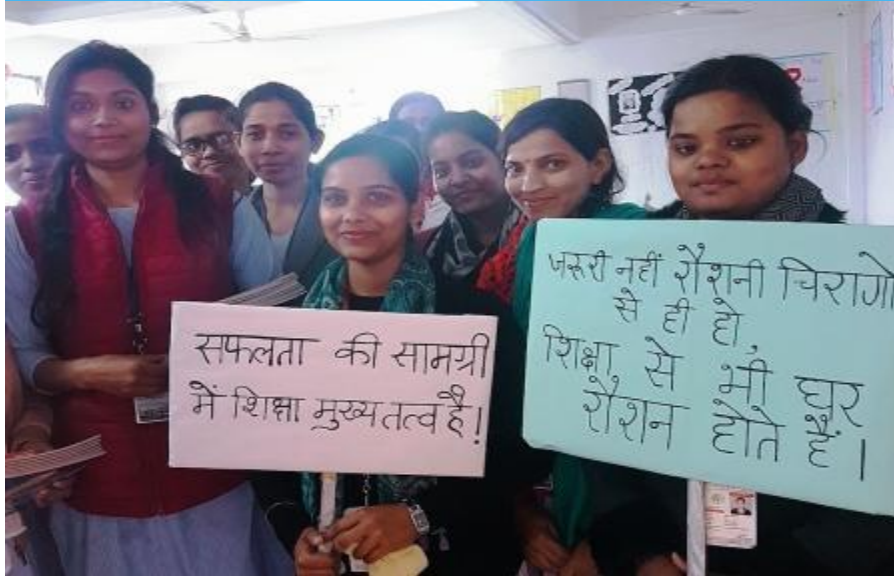 सफलता की सामग्री
में शिक्षा मुख्य तत्व है!
जरूरी नहीं रौशनी चिरागो
से ही हो,
शिक्षा से भी घर
रौशन होते हैं।